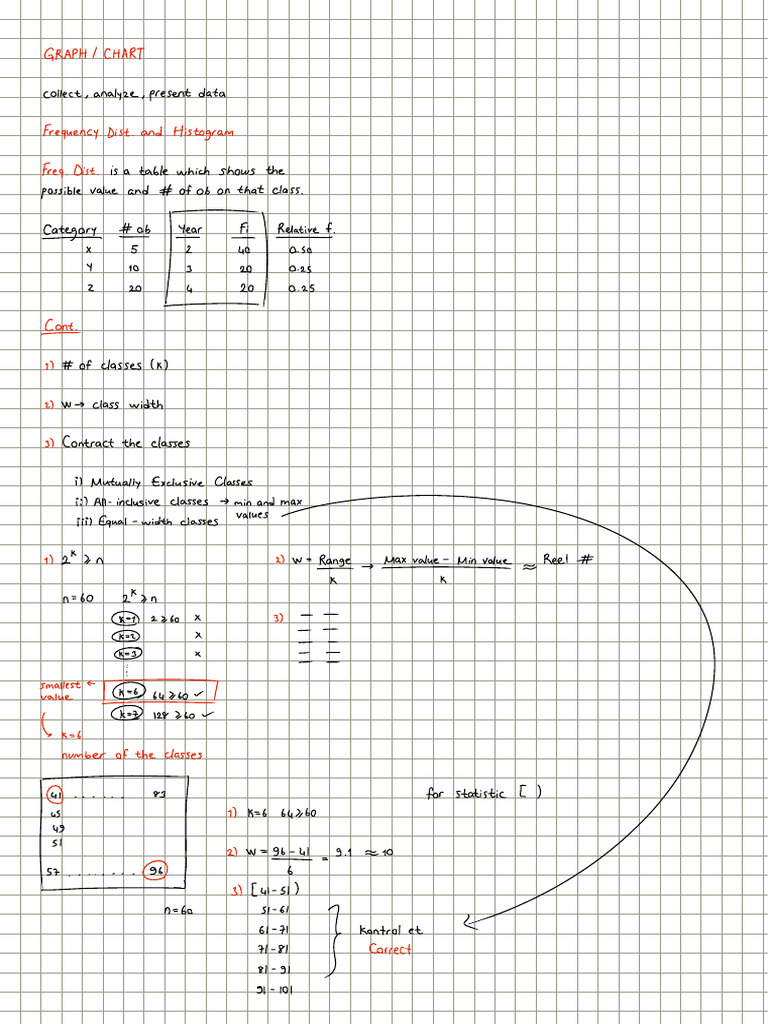 GRAPH / CHART
collect, analyze, present data
Frequency Dist. and Histogram
Freq. Dist. is a table which shows the
possible value and # of ob on that class.
Category # ob Year Fi Relative f.
X 5 2 40 0.50
Y 10 3 20 0.25
Z 20 4 20 0.25
Cont.
1) # of classes (K)
2) W → class width
3) Contract the classes
i) Mutually Exclusive Classes
ii) All-inclusive classes → min and max
values
iii) Equal-width classes
1) 2^K ≥ n
n=60 2^K ≥ n
K=1 2 ≥ 60 x
K=2 x
K=3 x
smallest ← K=6 64 ≥ 60 ✓
value
K=7 128 ≥ 60 ✓
K=6
number of the classes
2) W = Range / K → Max value - Min value / K ≈ Reel #
3)
41 ...... 83
45
49
51
57 ........ 96
n=60
for statistic [ )
1) K=6 64 ≥ 60
2) W = 96 - 41 / 6 = 9.1 ≈ 10
3) [41 - 51)
51 - 61
61 - 71
71 - 81
81 - 91
91 - 101
Kontrol et
Correct